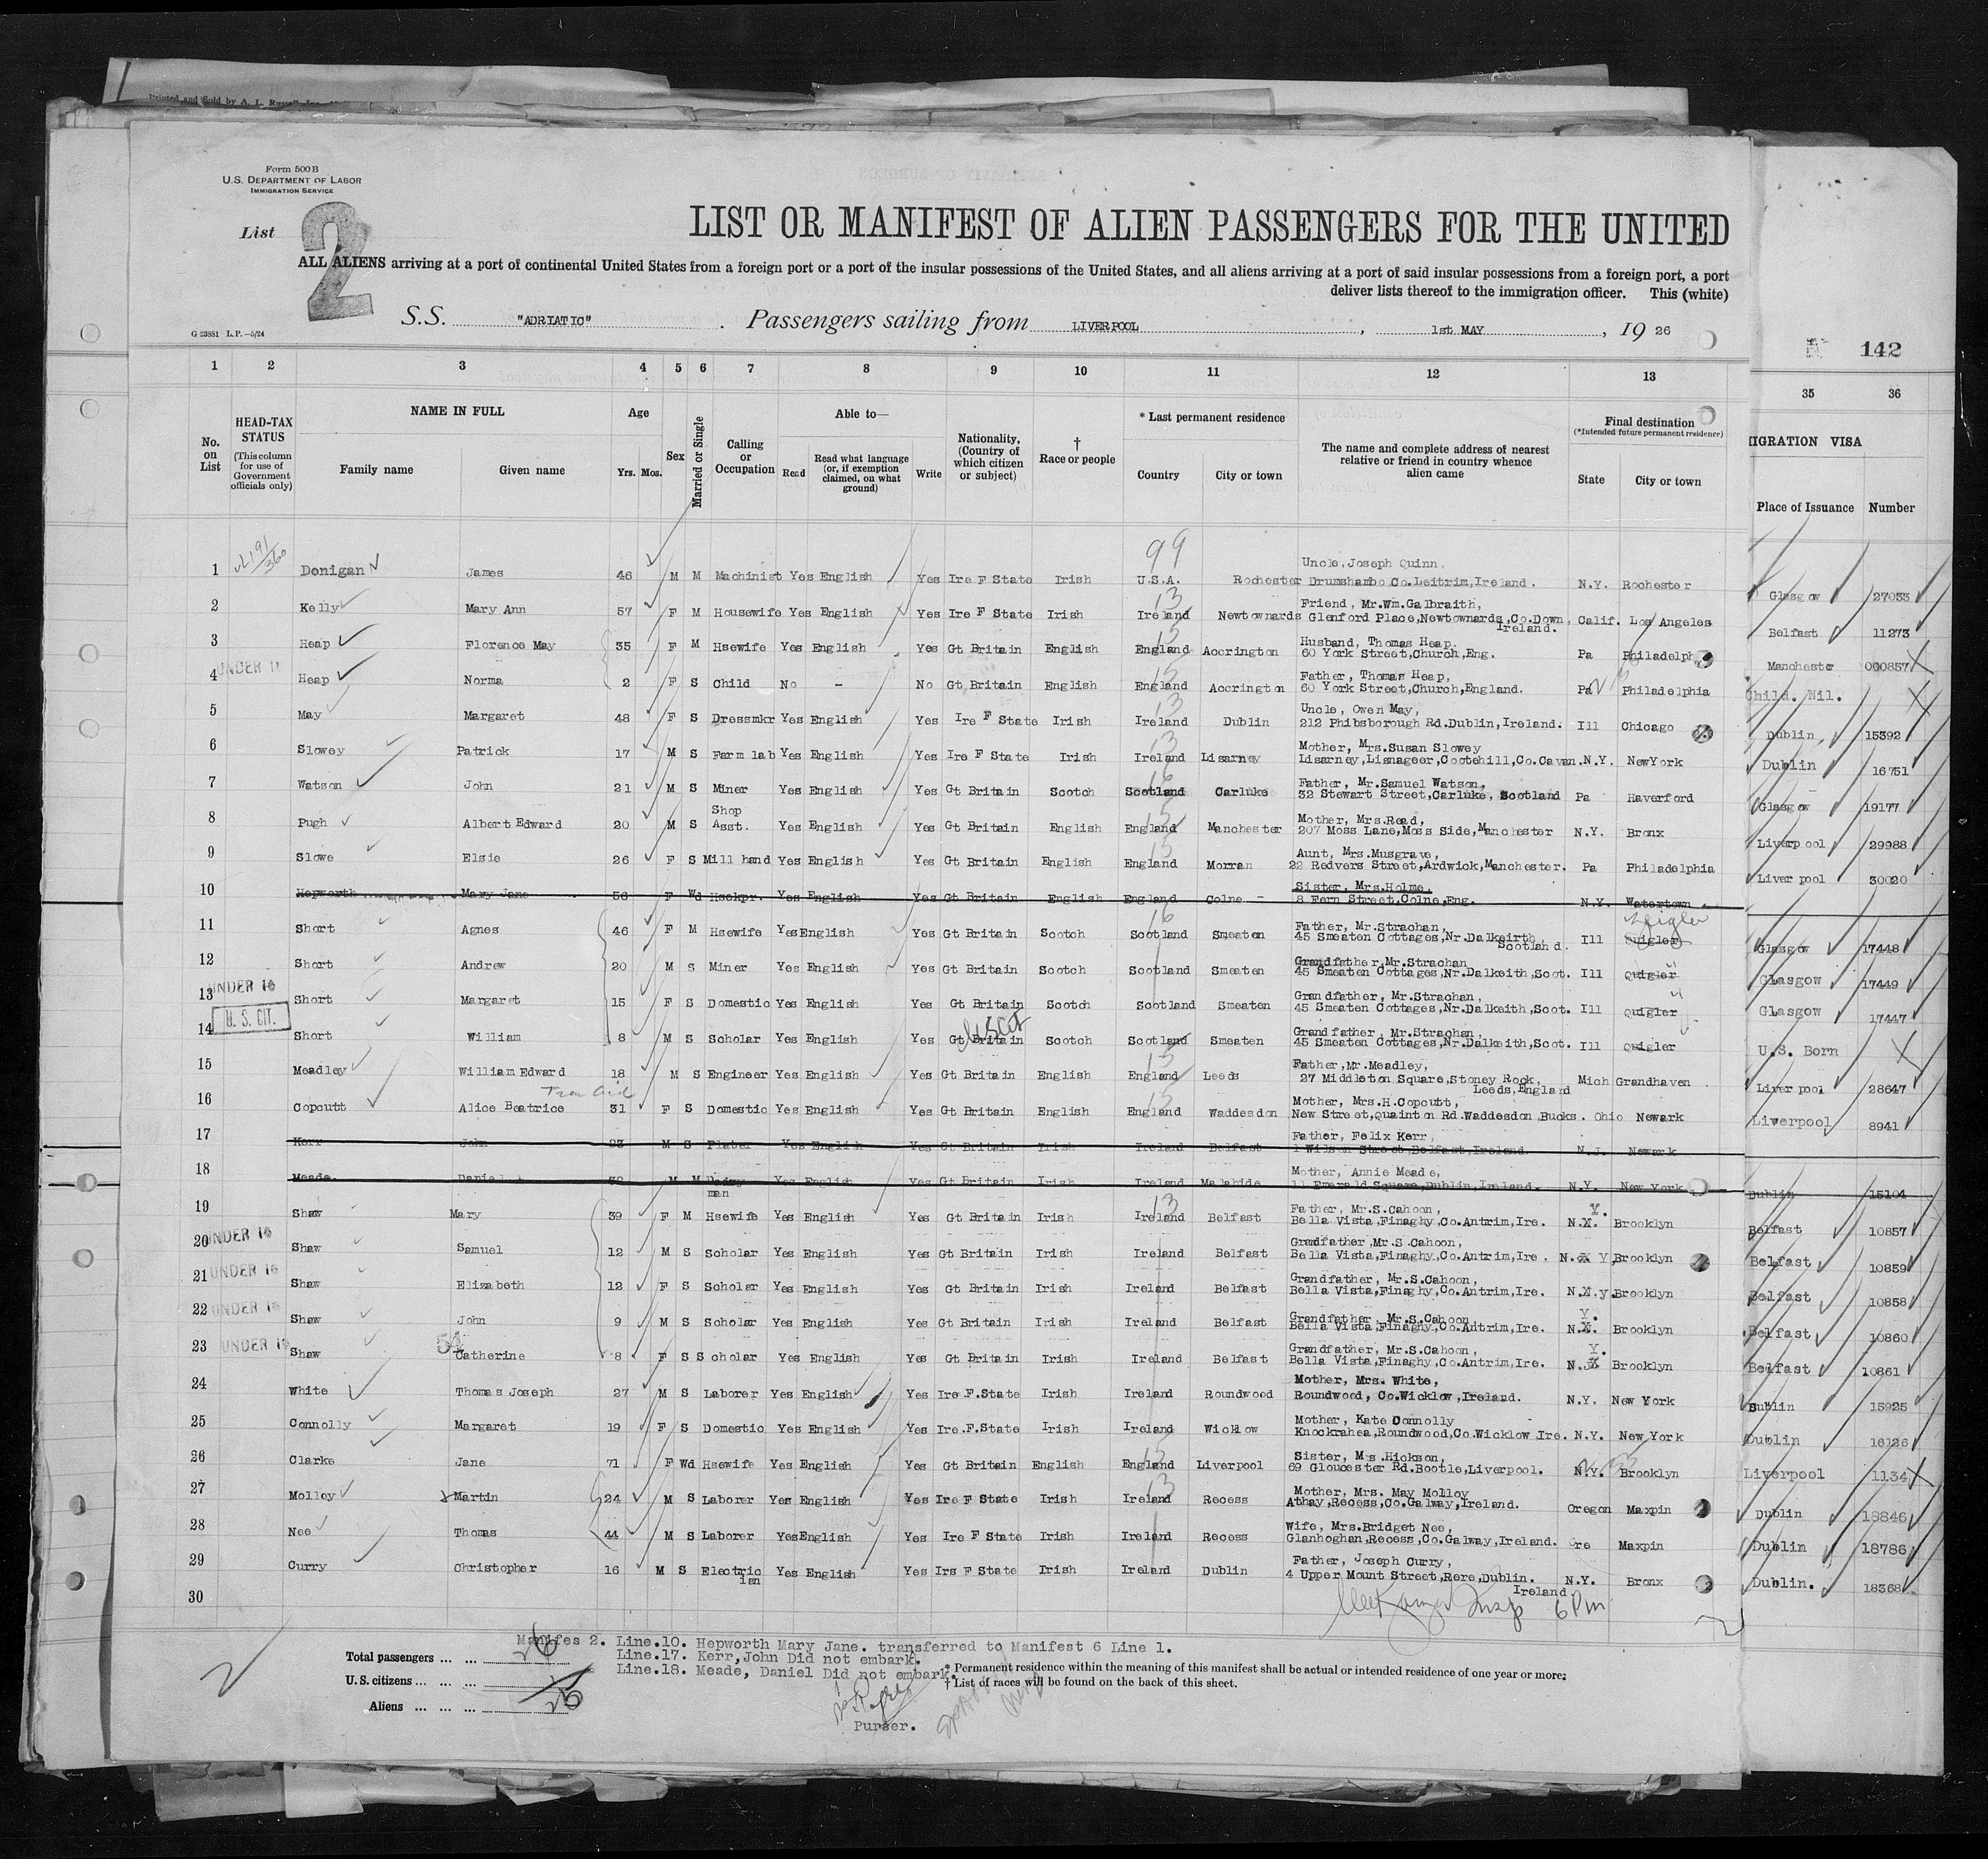 Printed and Sold by A. L. Russell, Inc.
Form 500 B
U.S. DEPARTMENT OF LABOR
IMMIGRATION SERVICE
List 2
LIST OR MANIFEST OF ALIEN PASSENGERS FOR THE UNITED
ALL ALIENS arriving at a port of continental United States from a foreign port or a port of the insular possessions of the United States, and all aliens arriving at a port of said insular possessions from a foreign port, a port
deliver lists thereof to the immigration officer. This (white)
S.S. "ADRIATIC". Passengers sailing from LIVERPOOL, 1st MAY, 19 26
G 23881 L.P.—5/24
142
1 2 3 4 5 6 7 8 9 10 11 12 13 35 36
No. on List
HEAD-TAX STATUS (This column for use of Government officials only)
NAME IN FULL Family name Given name
Age Yrs. Mos.
Sex
Married or Single
Calling or Occupation
Able to— Read Read what language (or, if exemption claimed, on what ground) Write
Nationality, (Country of which citizen or subject)
† Race or people
* Last permanent residence Country City or town
The name and complete address of nearest relative or friend in country whence alien came
Final destination (*Intended future permanent residence) State City or town
MIGRATION VISA Place of Issuance Number
99
Uncle, Joseph Quinn,
1 Donigan James 46 M M Machinist Yes English Yes Ire F State Irish U.S.A. Rochester Drumshambo Co.Leitrim,Ireland. N.Y. Rochester Glasgow 27033
13
Friend, Mr.Wm.Galbraith,
2 Kelly Mary Ann 57 F M Housewife Yes English Yes Ire F State Irish Ireland Newtownards Glenford Place,Newtownards,Co.Down, Ireland. Calif. Los Angeles Belfast 11273
15
Husband, Thomas Heap.
3 Heap Florence May 35 F M Hsewife Yes English Yes Gt Britain English England Accrington 60 York Street,Church,Eng. Pa Philadelph Manchester 000857
UNDER 1
15
Father, Thomas Heap,
4 Heap Norma 2 F S Child No - No Gt Britain English England Accrington 60 York Street,Church,England. Pa Philadelphia Child. Nil.
13
Uncle, Owen May,
5 May Margaret 48 F S Dressmkr Yes English Yes Ire F State Irish Ireland Dublin 212 Phibsborough Rd.Dublin,Ireland. Ill Chicago Dublin 15392
13
Mother, Mrs.Susan Slowey
6 Slowey Patrick 17 M S Farm lab Yes English Yes Ire F State Irish Ireland Lisarney Lisarney,Lisnageer,Cootehill,Co.Cavan. N.Y. NewYork Dublin 16751
Father, Mr.Samuel Watson,
7 Watson John 21 M S Miner Yes English Yes Gt Britain Scotch Scotland Carluke 32 Stewart Street,Carluke, Scotland Pa Haverford Glasgow 19177
Mother, Mrs.Read,
8 Pugh Albert Edward 20 M S Shop Asst. Yes English Yes Gt Britain English England Manchester 207 Moss Lane,Moss Side,Manchester N.Y. Bronx Liverpool 29988
15
Aunt, Mrs.Musgrave,
9 Slowe Elsie 26 F S Mill hand Yes English Yes Gt Britain English England Morran 22 Redvers Street,Ardwick,Manchester. Pa Philadelphia Liverpool 30020
Sister, Mrs.Holme,
10 Hepworth Mary Jane 56 F Wd Hsekpr. Yes English Yes Gt Britain English England Colne - 8 Fern Street,Colne,Eng. N.Y. Watertown
16
Zeigler
Father, Mr.Strachan,
11 Short Agnes 46 F M Hsewife Yes English Yes Gt Britain Scotch Scotland Smeaton 45 Smeaten Cottages,Nr.Dalkeirth Scotland. Ill Quigler Glasgow 17448
Grandfather,Mr.Strachan
12 Short Andrew 20 M S Miner Yes English Yes Gt Britain Scotch Scotland Smeaten 45 Smeaten Cottages,Nr.Dalkeith,Scot. Ill Quigler Glasgow 17449
UNDER 16
Grandfather, Mr.Strachan,
13 Short Margaret 15 F S Domestic Yes English Yes Gt Britain Scotch Scotland Smeaten 45 Smeaten Cottages,Nr.Dalkeith,Scot. Ill Quigler Glasgow 17447
U. S. CIT.
US Cit
Grandfather, Mr.Strachan,
14 Short William 8 M S Scholar Yes English Yes Gt Britain Scotch Scotland Smeaten 45 Smeaten Cottages,Nr.Dalkeith,Scot. Ill Quigler U.S. Born
15
Father,Mr.Meadley,
15 Meadley William Edward 18 M S Engineer Yes English Yes Gt Britain English England Leeds 27 Middleton Square,Stoney Rock, Leeds,England Mich Grandhaven Liverpool 28647
15
Mother, Mrs.H.Copcutt,
16 Copcutt Alice Beatrice 31 F S Domestic Yes English Yes Gt Britain English England Waddesdon New Street,Quainton Rd.Waddesdon,Bucks. Ohio Newark Liverpool 8941
Father, Felix Kerr,
17 Kerr John 23 M S Plater Yes English Yes Gt Britain Irish Ireland Belfast 1 Wilson Street,Belfast,Ireland. N.J. Newark
Mother, Annie Meade,
18 Meade Daniel M M Dairy man Yes English Yes Gt Britain Irish Ireland Malahide 11 Emerald Square,Dublin,Ireland. N.Y. New York Dublin 15104
13
Father, Mr.S.Cahoon,
19 Shaw Mary 39 F M Hsewife Yes English Yes Gt Britain Irish Ireland Belfast Bella Vista,Finaghy,Co.Antrim,Ire. N.Y. Brooklyn Belfast 10857
UNDER 16
Grandfather,Mr.S.Cahoon,
20 Shaw Samuel 12 M S Scholar Yes English Yes Gt Britain Irish Ireland Belfast Bella Vista,Finaghy,Co.Antrim,Ire. N.Y. Brooklyn Belfast 10859
UNDER 16
Grandfather, Mr.S.Cahoon,
21 Shaw Elizabeth 12 F S Scholar Yes English Yes Gt Britain Irish Ireland Belfast Bella Vista,Finaghy,Co.Antrim,Ire. N.Y. Brooklyn Belfast 10858
UNDER 16
Grandfather, Mr.S.Cahoon
22 Shaw John 9 M S Scholar Yes English Yes Gt Britain Irish Ireland Belfast Bella Vista,Finaghy,Co.Antrim,Ire. N.Y. Brooklyn Belfast 10860
UNDER 16
54
Grandfather, Mr.S.Cahoon,
23 Shaw Catherine 8 F S Scholar Yes English Yes Gt Britain Irish Ireland Belfast Bella Vista,Finaghy,Co.Antrim,Ire. N.Y. Brooklyn Belfast 10861
Mother, Mrs. White,
24 White Thomas Joseph 27 M S Laborer Yes English Yes Ire F.State Irish Ireland Roundwood Roundwood, Co.Wicklow,Ireland. N.Y. New York Dublin 15925
Mother, Kate Connolly
25 Connolly Margaret 19 F S Domestic Yes English Yes Ire.F.State Irish Ireland Wicklow Knockrahea,Roundwood,Co.Wicklow Ire. N.Y. New York Dublin 16126
15
Sister, Ms.Hickson,
26 Clarke Jane 71 F Wd Hsewife Yes English Yes Gt Britain English England Liverpool 69 Gloucester Rd.Bootle,Liverpool. N.Y. Brooklyn Liverpool 1134
13
Mother, Mrs. May Molloy
27 Molloy Martin 24 M S Laborer Yes English Yes Ire F State Irish Ireland Recess Athay,Recess,Co.Galway,Ireland. Oregon Maxpin Dublin 18846
Wife, Mrs.Bridget Nee,
28 Nee Thomas 44 M S Laborer Yes English Yes Ire F State Irish Ireland Recess Glanhoghan,Recess,Co.Galway,Ireland. Ore Maxpin Dublin 18786
Father, Joseph Curry,
29 Curry Christopher 16 M S Electric ian Yes English Yes Irs F State Irish Ireland Dublin 4 Upper Mount Street,Rere,Dublin. Ireland. N.Y. Bronx Dublin. 18368
30
Insp 6 Pm
Manifes 2. Line.10. Hepworth Mary Jane. transferred to Manifest 6 Line 1.
Line.17. Kerr,John Did not embark.
Line.18. Meade, Daniel Did not embark.
Total passengers ... ... 26
U.S. citizens ... ... ...
Aliens ... ... ...
* Permanent residence within the meaning of this manifest shall be actual or intended residence of one year or more.
† List of races will be found on the back of this sheet.
Purser.